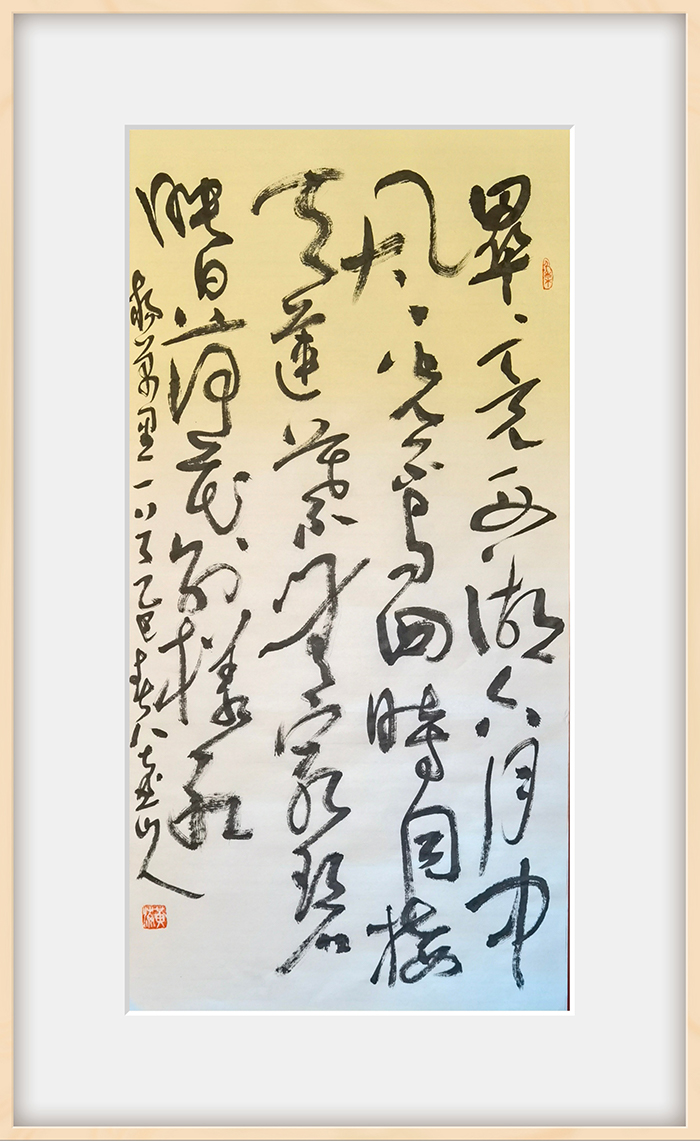 畢竟西湖六月中
風光不與四時同接
天蓮葉無窮碧
映日荷花別樣紅
楊萬里 乙巳春 山人